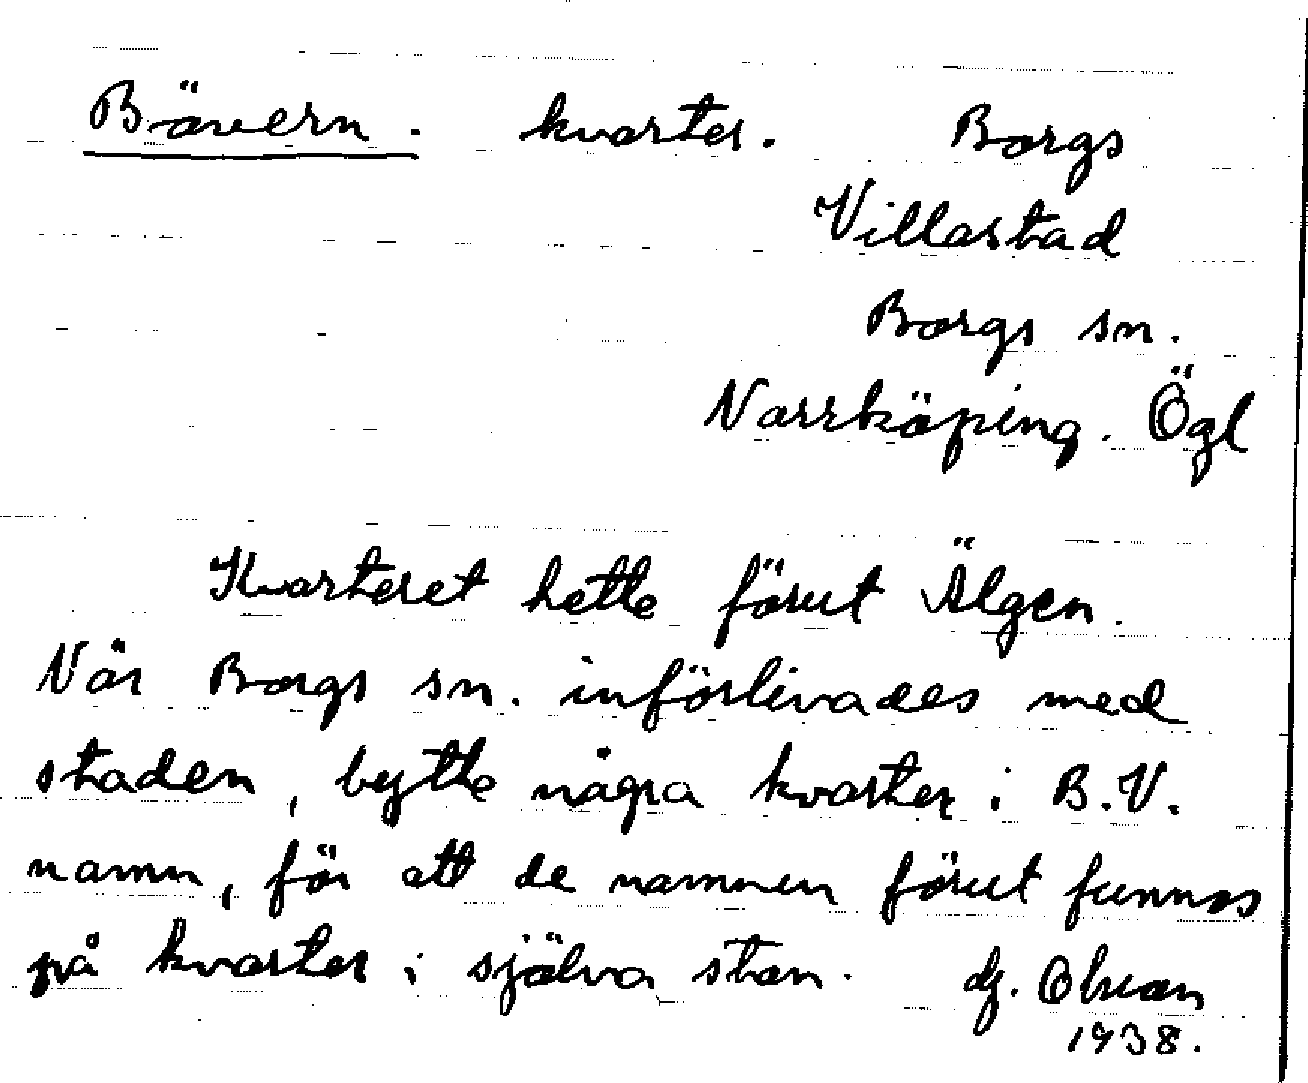 Bävern. kvarter. Borgs
Villastad
Borgs sn.
Norrköping. Ögl
Kvarteret hette förut Älgen.
När Borgs sn. införlivades med
staden, bytte några kvarter i B.V.
namn, för att de namnen förut funnos
på kvarter i själva stan. dj. Ohman
1938.